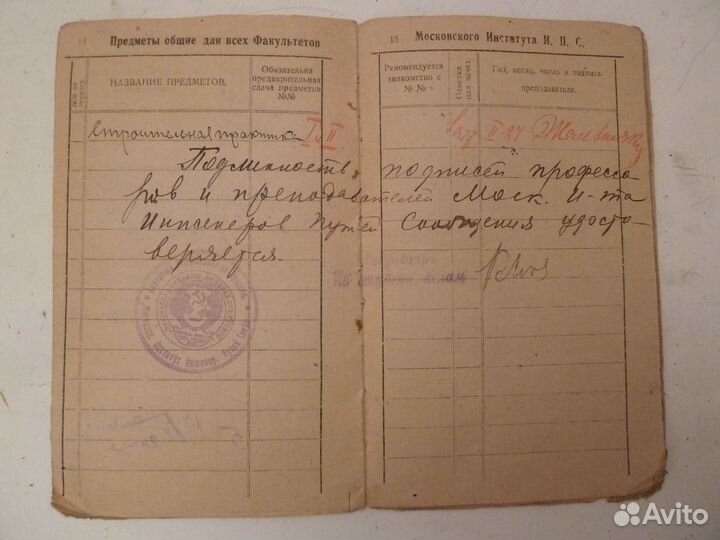 14 Предметы общие для всех Факультетов
№№ по порядку.
НАЗВАНИЕ ПРЕДМЕТОВ.
Обязательна предварительная сдача предметов №№
Строительная практика I и II
15 Московского Института И. П. С.
Рекомендуется знакомство с №№
Отметка или зачет.
Год, месяц, число и подпись преподавателя.
II-24
Подлинность подписей профессо-
ров и преподавателей Моск. И-та
Инженеров Путей Сообщения удосто-
веряется.
Avito